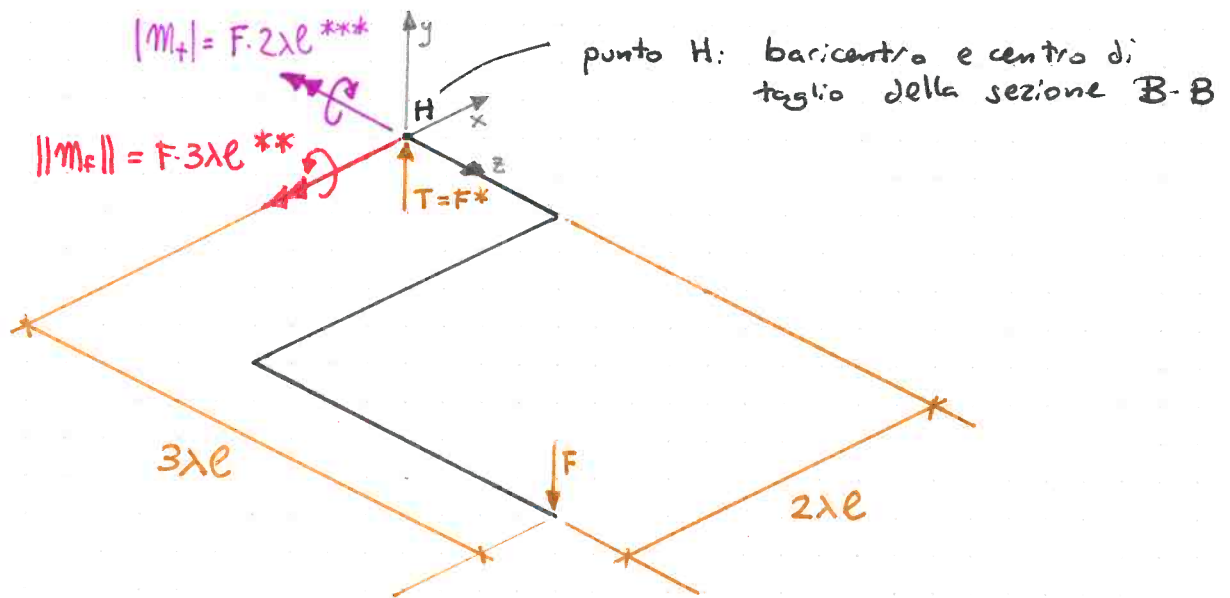 |m_t| = F·2λℓ ***
y
punto H: baricentro e centro di
taglio della sezione B-B
H
x
||m_f|| = F·3λℓ **
z
T=F*
3λℓ
F
2λℓ